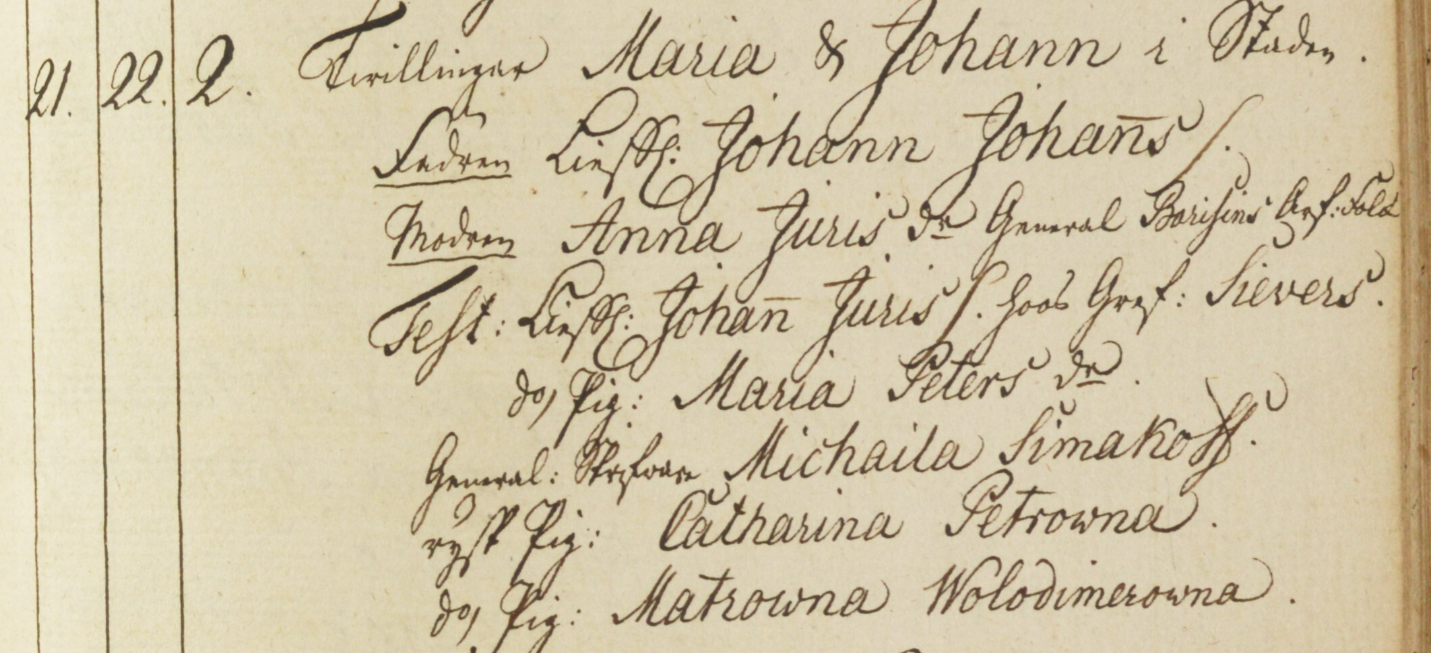 21. 22. 2. Twillingar Maria & Johann i Staden.
Fadren Liefl: Johann Johan̄s S.
Modren Anna Juris dr General Borisins Arf: Folk
Test: Liefl: Johan̄ Juris S. hos Gref: Sievers.
do, Pig: Maria Peters dr.
General: Skrifvare Michaila Simakoff.
rysk Pig: Catharina Petrowna.
do, Pig: Matrowna Wolodimerowna.